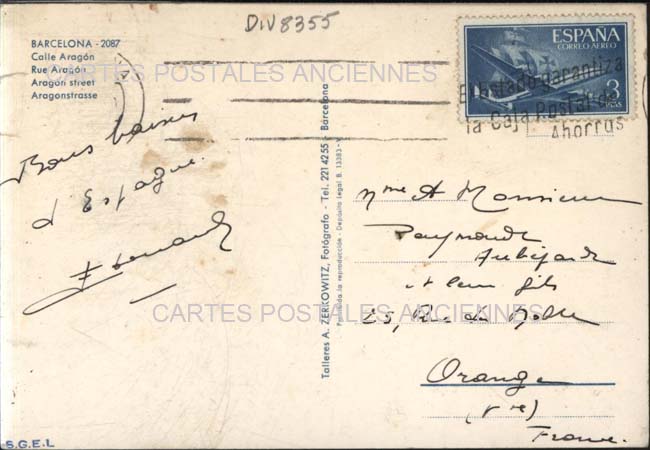 DIV8355
BARCELONA - 2087
Calle Aragón
Rue Aragón
Aragón street
Aragonstrasse
CARTES POSTALES ANCIENNES
ESPAÑA
CORREO AEREO
3
PTAS
El estado garantiza
la Caja Postal de
Ahorros
Bons baisers
d'Espagne.
Talleres A. ZERKOWITZ, Fotógrafo - Tel. 221 42 55 - Barcelona
Prohibida la reproducción - Depósito Legal B. 13383-V
Mme & Monsieur
Raymonde
et leur fils
25, Rue du
Orange
(Vse)
France.
CARTES POSTALES ANCIENNES
S.G.E.L